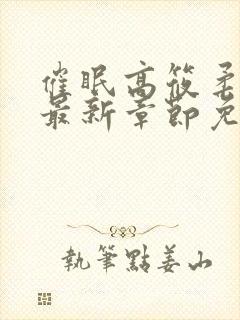 催眠高筱柔
最新章節免
執筆點姜山